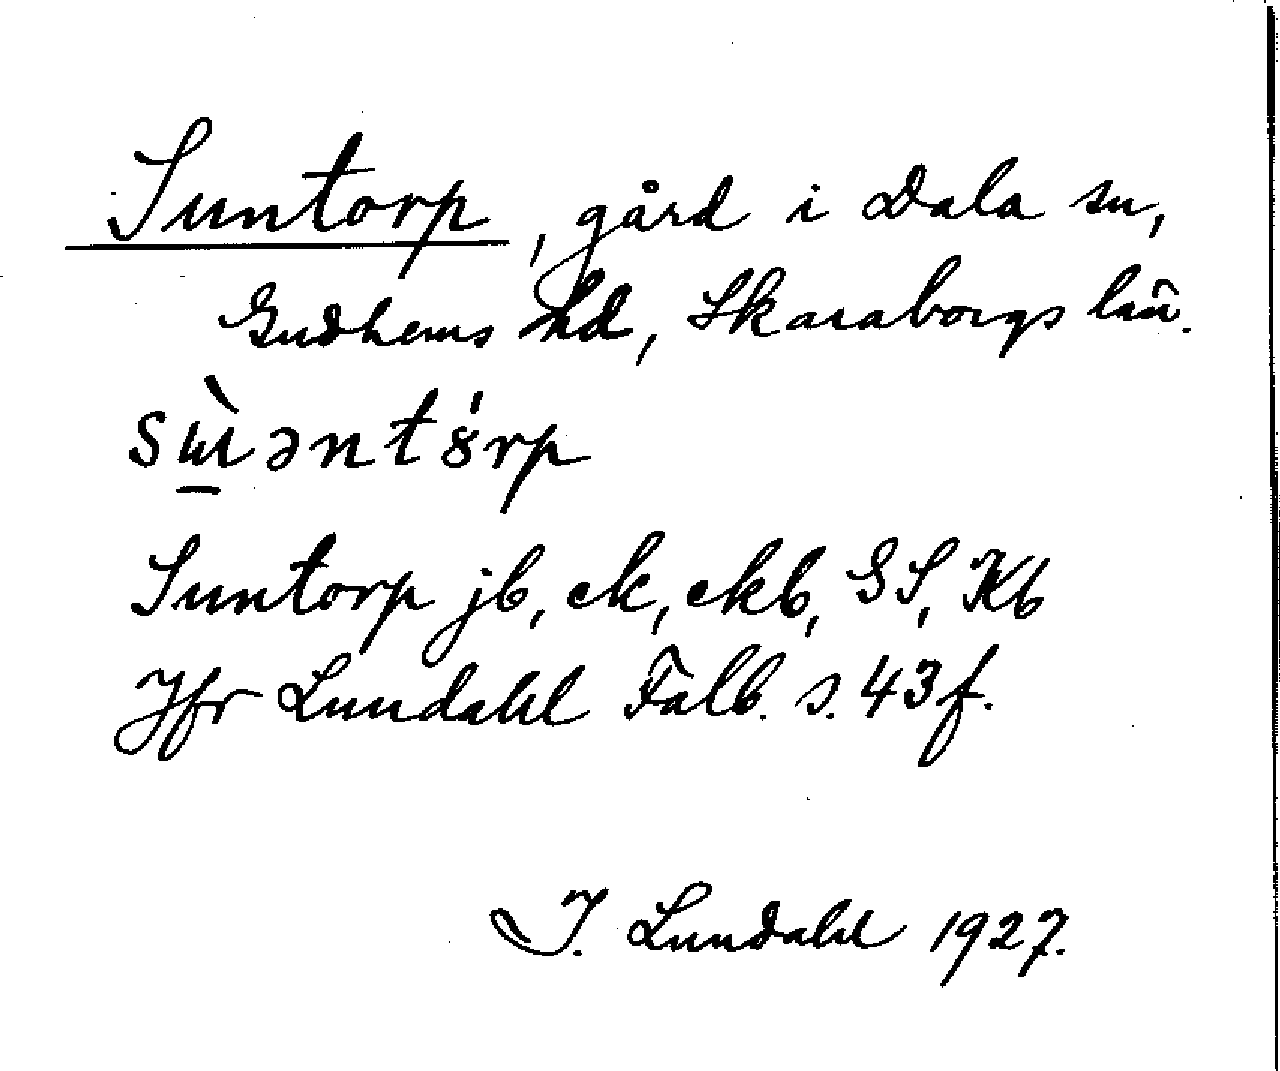 Suntorp, gård i Dala sn,
Gudhems hd, Skaraborgs län.
sɯ̱̀əntȣ́rp
Suntorp jb, ek, ekb, GS, Kb
Jfr Lundahl Falb. s. 43 f.
I. Lundahl 1927.